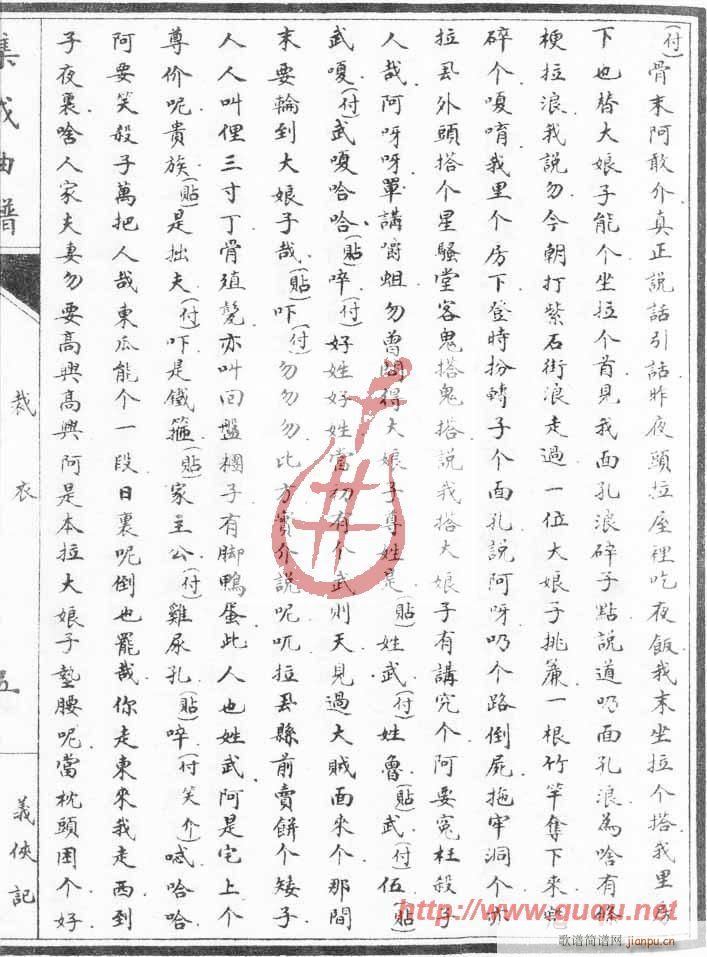 (付)骨末阿敢介真正説話引話昨夜頭拉屋裡吃夜飯我末坐拉个搭我里房
下也替大娘子能个坐拉个首見我面孔浪碎子點説道吶面孔浪為啥有條
梗拉浪我説勿今朝打紫石街浪走過一位大娘子挑簾一根竹竿奪下來
碎个嗄唷我里个房下登時扮轉子个面孔説阿呀吶个路倒屍拖牢洞个亦
拉厾外頭搭个星騷堂客鬼搭鬼搭説我搭大娘子有講究个阿要冤枉殺子
人哉阿呀呀單講嚼蛆勿曾問得大娘子尊姓是(貼)姓武(付)姓魯(貼)武(付)伍(貼)
武嗄(付)武嗄哈哈(貼)啐(付)好姓好姓當初有个武則天見過大賊面來个那間
末要輪到大娘子哉(貼)吓(付)勿勿勿比方實介説呢吭拉厾縣前賣餅个矮子
人人叫俚三寸丁骨殖甏亦叫回盤糰子有脚鴨蛋此人也姓武阿是宅上个
尊价呢貴族(貼)是拙夫(付)吓是鐵箍(貼)家主公(付)雞尿孔(貼)啐(付笑介)喊哈哈
阿要笑殺子萬把人哉東瓜能个一段日裏呢倒也罷哉你走東來我走西到
子夜裏啥人家夫妻勿要高興高興阿是本拉大娘子墊腰呢當枕頭困个好
集成曲譜
裁衣
五
義俠記
http://www.ququ.net
歌谱简谱网
jianpu.cn